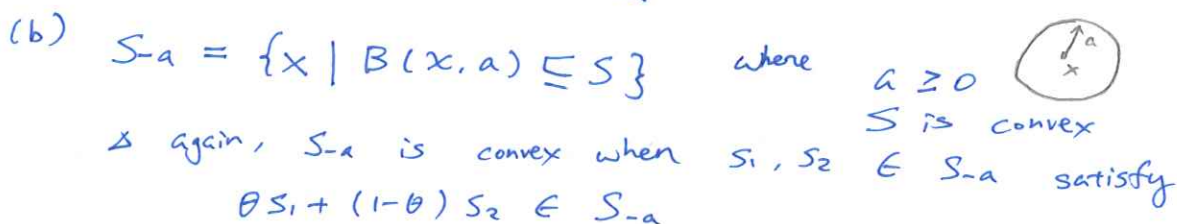 (b) S-a = {x | B(x, a) ⊆ S} where a ≥ 0
a
x
S is convex
△ again, S-a is convex when s1, s2 ∈ S-a satisfy
θ s1 + (1-θ) s2 ∈ S-a